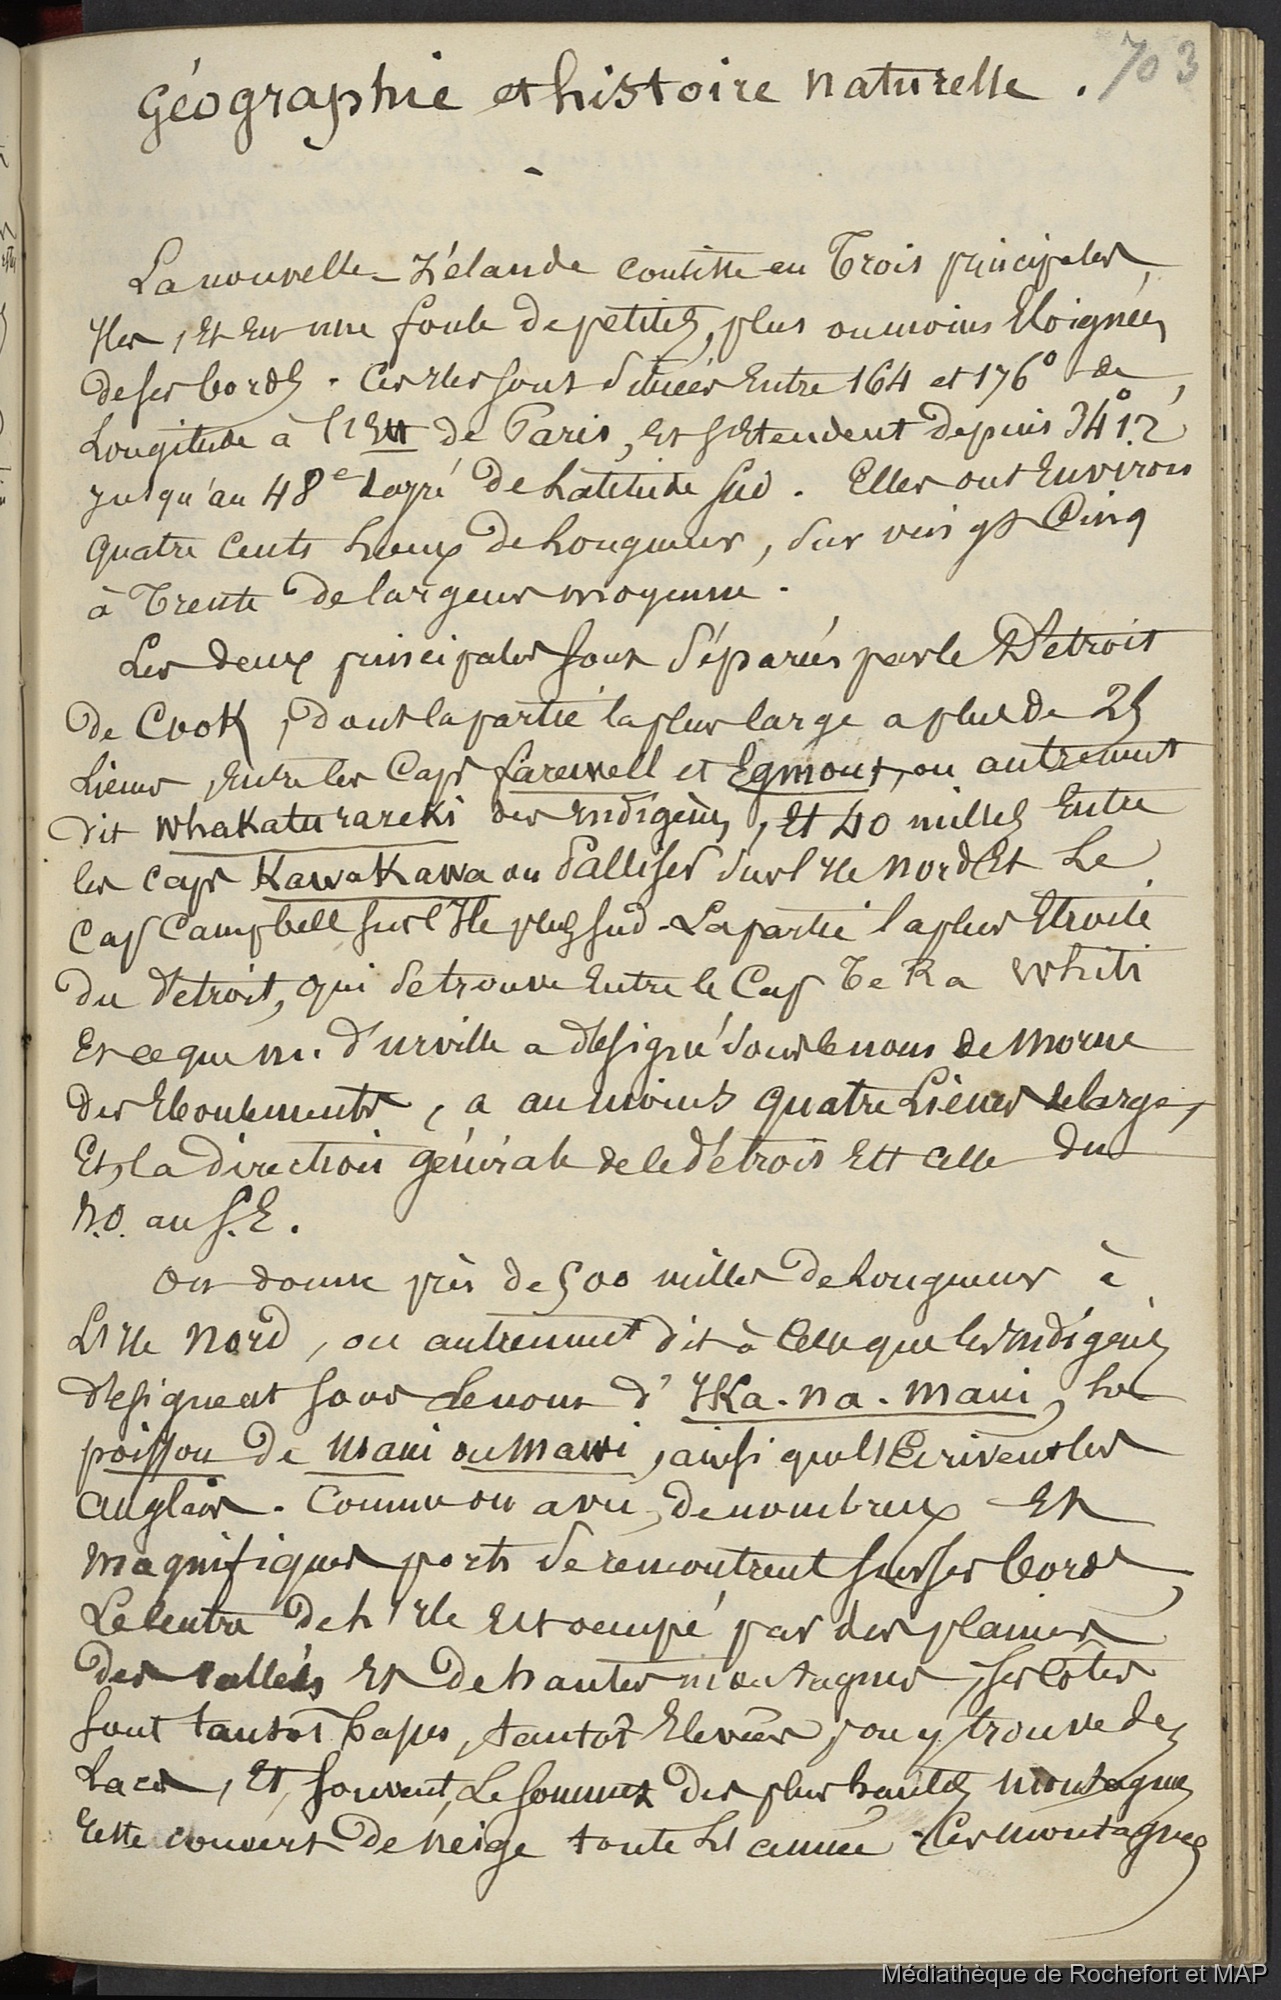 703
Géographie et histoire naturelle.
La nouvelle-Zélande consiste en Trois principales
Iles, Et en une foule de petites, plus ou moins Eloignées
de ses bords. Ces Iles sont Situées Entre 164 et 176° de
Longitude à l'Est de Paris, Et s'Etendent depuis 34°12'
jusqu'au 48e degré de Latitude Sud. Elles ont Environ
quatre cents Lieux de Longueur, Sur vingt Cinq
à Trente de largeur moyenne.
Les deux principales sont Séparés par le Détroit
de Cook, dont la partie la plus large a plus de 25
Lieues, entre les Caps farewell et Egmont, ou autrement
dit Whakaturareki des Indigènes, Et 40 milles Entre
les caps KawaKawa ou Palliser Sur l'Ile Nord Et Le
Cap Campbell sur l'Ile plus Sud. La partie la plus Etroite
du détroit, qui se trouve Entre le Cap Te Ra Whiti
Et ce que m. d'urville a désigné sous le nom de Morne
des Eboulements, a au moins quatre Lieues de large,
Et, la direction générale de le détroit Est celle du
N.O. au S.E.
On donne près de 500 milles de Longueur à
L'Ile Nord, ou autrement dit à Celle que les Indigènes
désignent sous le nom d'IKa-na-Maui, Le
poisson de Maui ou Mawi, ainsi que l'Ecrivent les
anglais. Comme on a vu, de nombreux Et
magnifiques ports se rencontrent sur ses bords,
Le Centre de L'Ile Est occupé par des plaines
des vallées Et de hautes montagnes, ses côtes
sont tantôt basses, tantôt Elevées, on y trouve des
Lacs, Et, souvent, Le sommet des plus hautes montagnes
reste couvert de neige toute L'année. Ces montagnes
Médiathèque de Rochefort et MAP